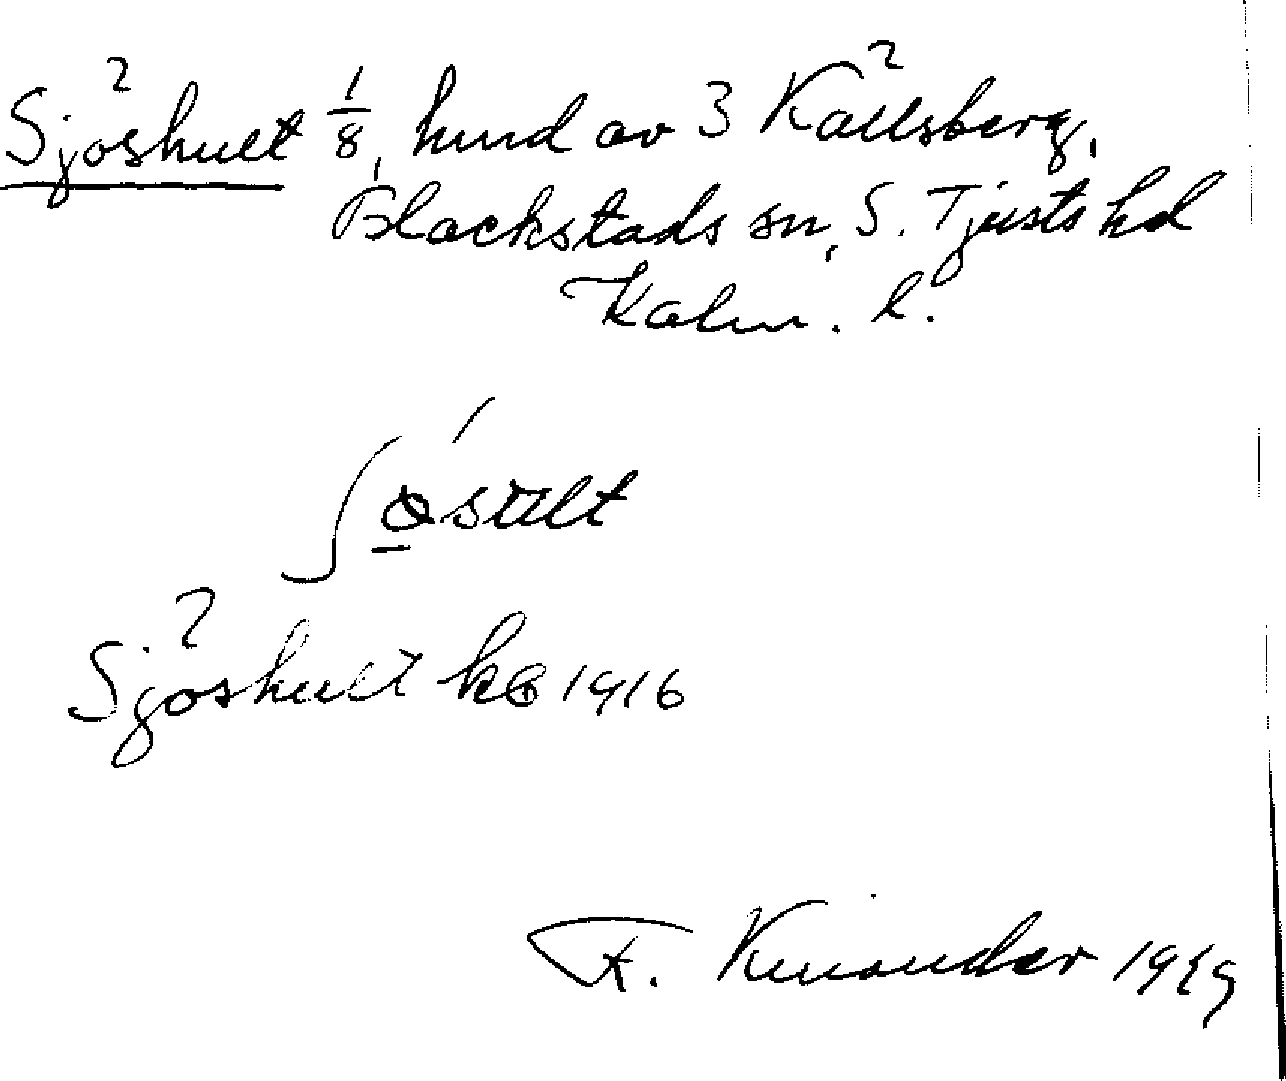 Sjöshult 1/8, hmd av 3 Källsberg,
Blackstads sn, S. Tjusts hd
Kalm. l.
Sjöshult kb 1916
K. Kinander 1929